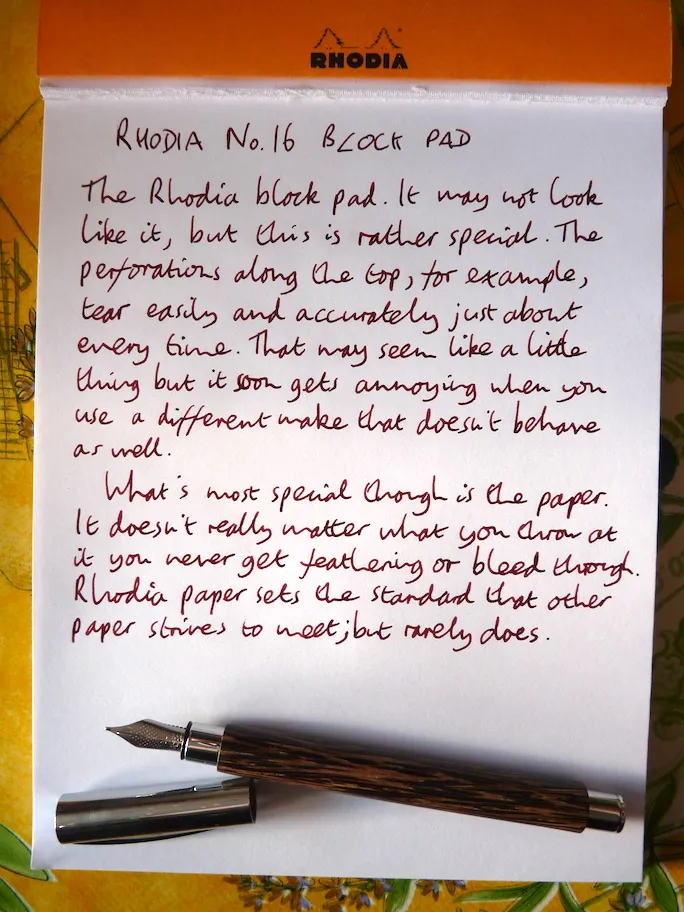 RHODIA
RHODIA No.16 BLOCK PAD
The Rhodia block pad. It may not look
like it, but this is rather special. The
perforations along the top, for example,
tear easily and accurately just about
every time. That may seem like a little
thing but it soon gets annoying when you
use a different make that doesn't behave
as well.
What's most special though is the paper.
It doesn't really matter what you throw at
it you never get feathering or bleed through.
Rhodia paper sets the standard that other
paper strives to meet; but rarely does.